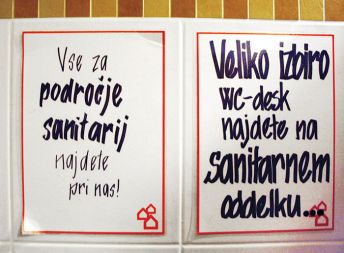 Vse za
področje
sanitarij
najdete
pri nas!
Veliko izbiro
wc-desk
najdete na
sanitarnem
oddelku...